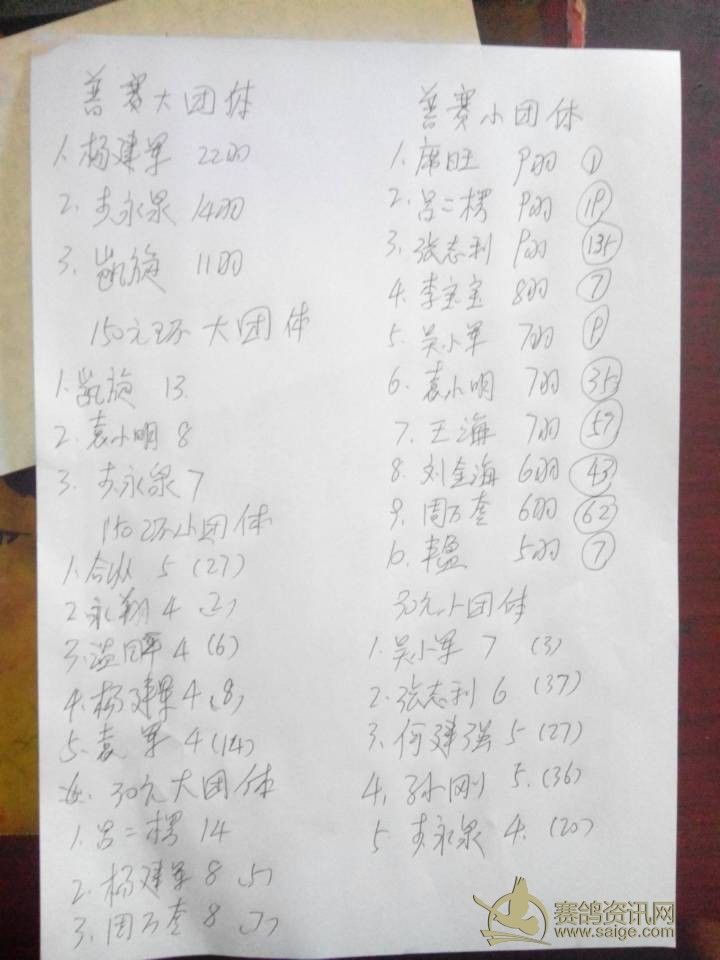 普赛大团体
1. 杨建军 22羽
2. 永泉 14羽
3. 凯旋 11羽
150元环大团体
1. 凯旋 13
2. 袁小明 8
3. 永泉 7
150环小团体
1. 合伙 5 (27)
2. 永翔 4 (2)
3. 4 (6)
4. 杨建军 4 (8)
5. 袁军 4 (14)
30元大团体
1. 吕二楞 14
2. 杨建军 8 (5)
3. 周万奎 8 (7)
普赛小团体
1. 席旺 9羽 ①
2. 吕二楞 9羽 19
3. 张志利 9羽 135
4. 李宝宝 8羽 ⑦
5. 吴小军 7羽 ⑨
6. 袁小明 7羽 35
7. 王海 7羽 57
8. 刘金海 6羽 43
9. 周万奎 6羽 62
10. 5羽 ⑦
30元小团体
1. 吴小军 7 (3)
2. 张志利 6 (37)
3. 何建强 5 (27)
4. 孙刚 5. (36)
5 永泉 4. (20)
赛鸽资讯网
www.saige.com